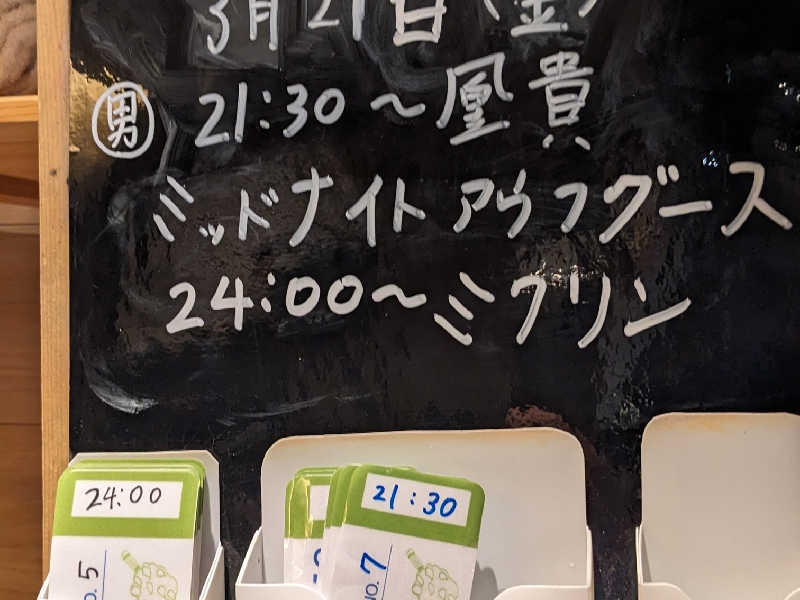 3月21日(金)
男 21:30~凰貴
ミッドナイトアウフグース
24:00~ミクリン
24:00
21:30
NO.7
5